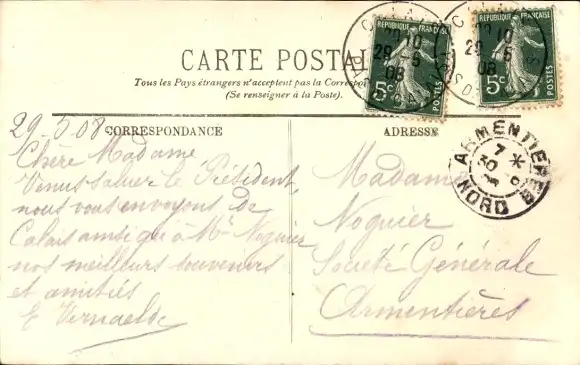 CARTE POSTAL
Tous les Pays étrangers n'acceptent pas la Correspo
(Se renseigner à la Poste).
REPUBLIQUE FRANÇAISE
5c
REPUBLIQUE FRANÇAISE
5c
CALAIS
20 10
29 -5
08
10
29 -5
08
29-5-08
CORRESPONDANCE
Chère Madame
Venus saluer le Président,
nous vous envoyons de
Calais ainsi qu'à Mr Noguier
nos meilleurs souvenirs
et amitiés
E
ADRESSE
ARMENTIERES
7 *
30
NORD
Madame
Noguier
Société Générale
Armentières